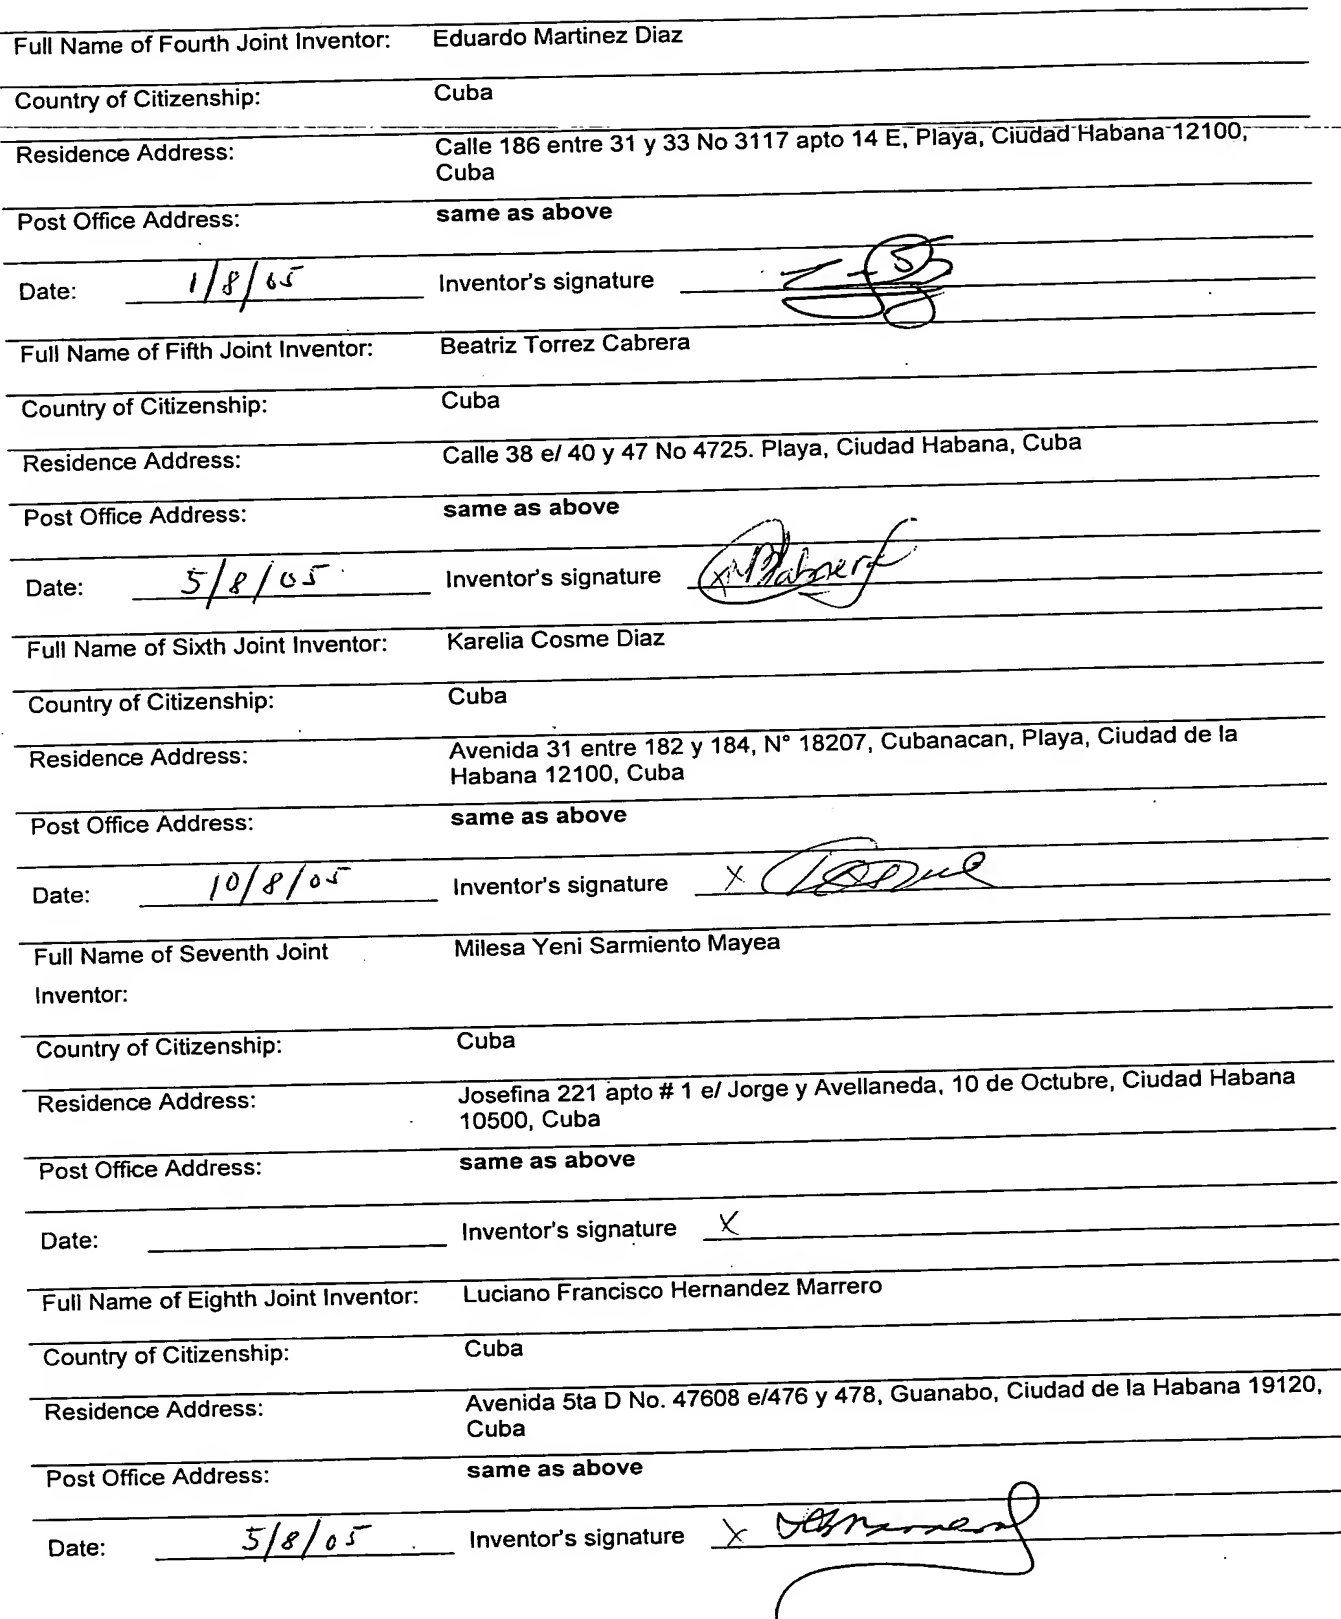 Full Name of Fourth Joint Inventor: Eduardo Martinez Diaz
Country of Citizenship: Cuba
Residence Address: Calle 186 entre 31 y 33 No 3117 apto 14 E, Playa, Ciudad Habana 12100,
Cuba
Post Office Address: same as above
Date: 1/8/05 Inventor's signature
Full Name of Fifth Joint Inventor: Beatriz Torrez Cabrera
Country of Citizenship: Cuba
Residence Address: Calle 38 e/ 40 y 47 No 4725. Playa, Ciudad Habana, Cuba
Post Office Address: same as above
Date: 5/8/05 Inventor's signature x
Full Name of Sixth Joint Inventor: Karelia Cosme Diaz
Country of Citizenship: Cuba
Residence Address: Avenida 31 entre 182 y 184, N° 18207, Cubanacan, Playa, Ciudad de la
Habana 12100, Cuba
Post Office Address: same as above
Date: 10/8/05 Inventor's signature x Cosme
Full Name of Seventh Joint Milesa Yeni Sarmiento Mayea
Inventor:
Country of Citizenship: Cuba
Residence Address: Josefina 221 apto # 1 e/ Jorge y Avellaneda, 10 de Octubre, Ciudad Habana
10500, Cuba
Post Office Address: same as above
Date: Inventor's signature x
Full Name of Eighth Joint Inventor: Luciano Francisco Hernandez Marrero
Country of Citizenship: Cuba
Residence Address: Avenida 5ta D No. 47608 e/476 y 478, Guanabo, Ciudad de la Habana 19120,
Cuba
Post Office Address: same as above
Date: 5/8/05 Inventor's signature x